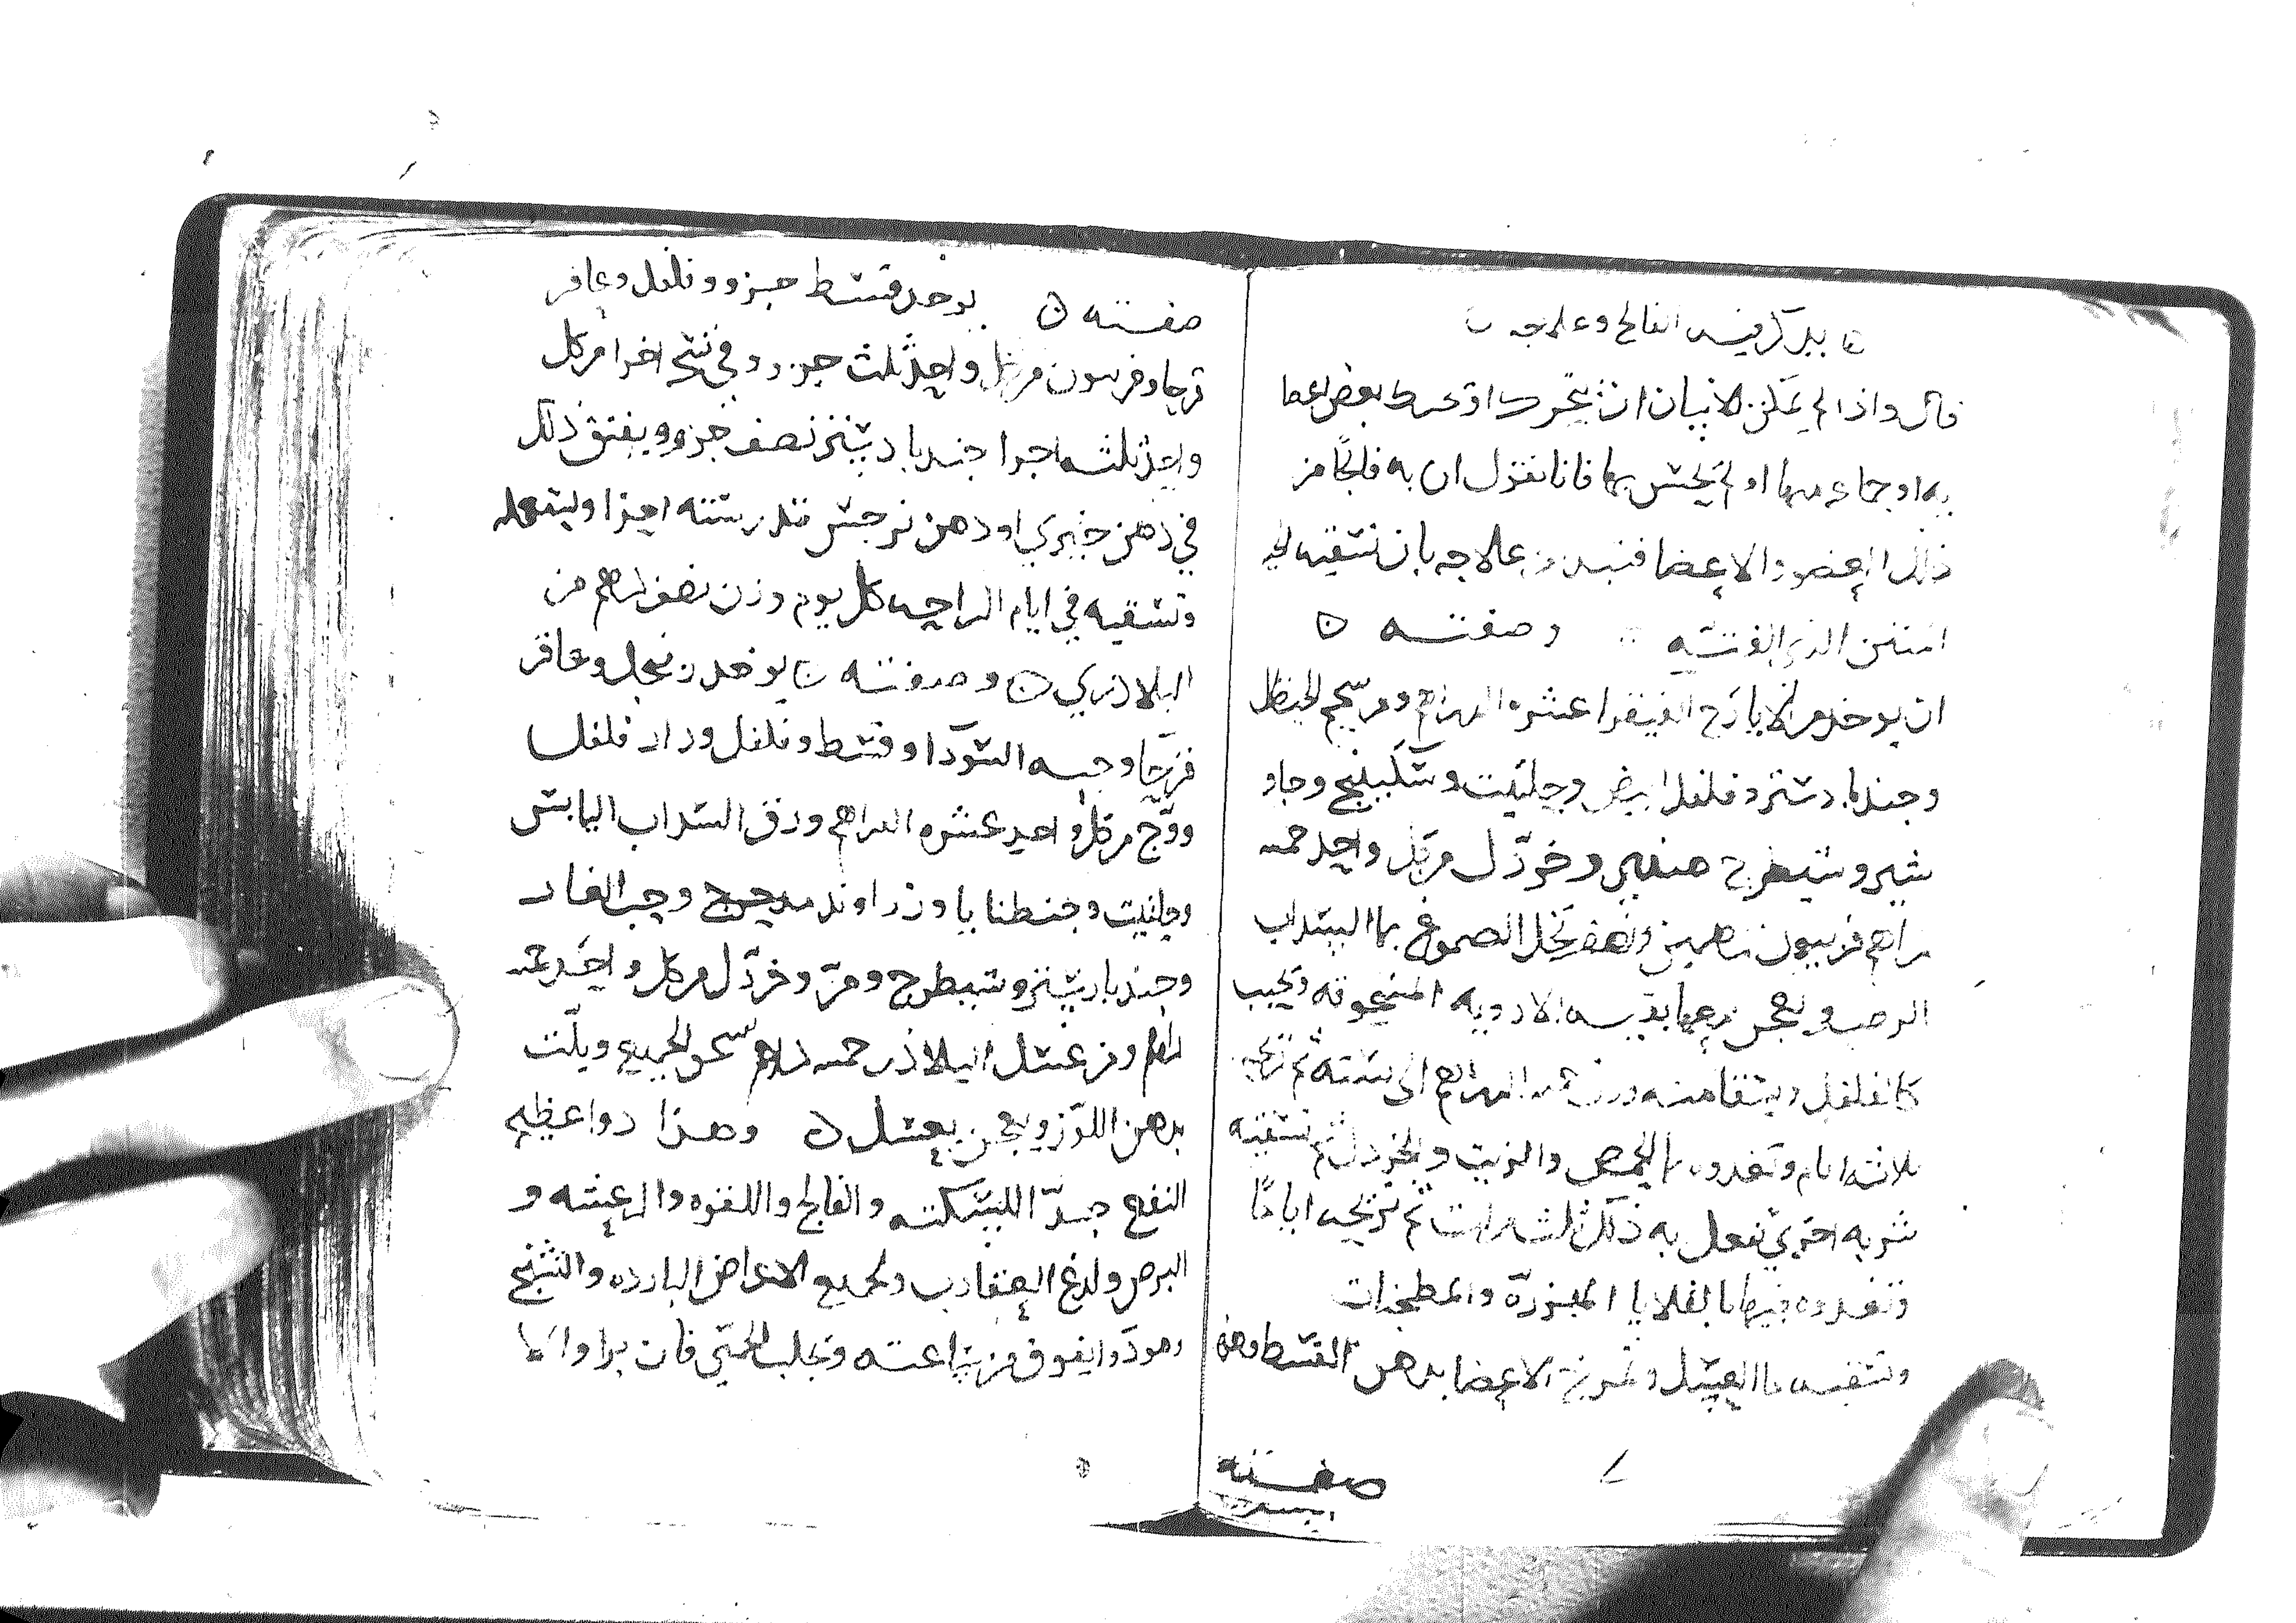 يذكر فيه الفالج وعلاجه
قال واذا لم يمكن الانسان ان يتحرك او تحرك بعض اعضا
به اوجاع منها او لم يحس بها فانا نقول ان به فالجا من
ذلك العضو والاعضا فنبدا علاجه بان نسقيه
المنتن الذي الفته وصفته
ان يوخذ من الايارج الفيقرا عشره الدراهم ومن شحم الحنظل
وجندبادستر وفلفل ابيض وحلتيت وسكبينج وجاو
شير وشيطرج هندي وخردل من كل واحد خمسه
دراهم فربيون درهمين ونصف تحل الصموغ بما السداب
الرطب ويعجن بها بقيه الادويه المسحوقه ويحبب
كالفلفل ويسقا منه وزن الدراهم الى سته ثم تريحه
ثلاثه ايام وتغدوه بما الحمص والزيت والخردل ثم تسقيه
شربه اخرى تفعل به ذلك ثلث مرات ثم تريحه اياما
وتغدوه فيها بالقلايا المبزره والمطجنات
وتسقيه ما العسل وتمرخ الاعضا بدهن القسط وهذه
صفته
صفته يوخذ قسط جزو وفلفل وعاقر
قرحا وفربيون من كل واحد ثلث جزو وفي نسخه اخرا من كل
واحد ثلثه اجزا جندبادستر نصف جزو ويفتق ذلك
في دهن خيري او دهن نرجس قدر سته اجزا ويستعمله
وتسقيه في ايام الراحه كل يوم وزن نصف درهم من
البلاذري وصفته يوخذ زنجبيل وعاقر
قرحا وحبه السودا وقسط وفلفل ودار فلفل
ووج من كل واحد عشره الدراهم ورق السداب اليابس
وحلتيت وجنطيانا وزراوند مدحرج وحب الغار
وجندبادستر وشيطرج ومر وخردل من كل واحد خمسه
دراهم ومن عسل البلاذر خمسه دراهم يسحق الجميع ويلت
بدهن اللوز ويعجن بعسل وهذا دوا عظيم
النفع جدا للسكته والفالج واللقوه والرعشه و
البرص ولدغ العقارب ولجميع الامراض البارده والتشنج
وهو دوا يفوق من ساعته ويجلب الحمى فان برا والا